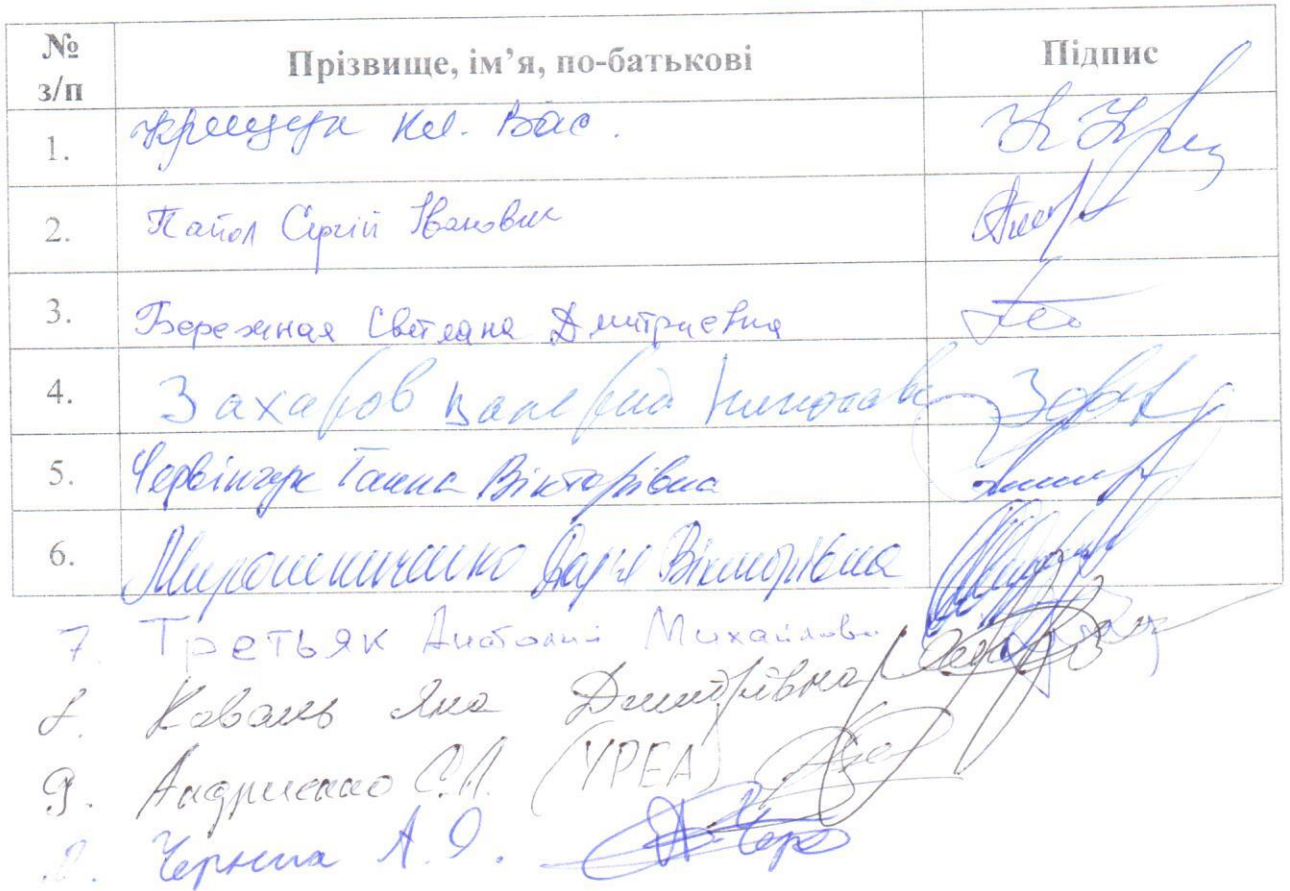 № з/п Прізвище, ім’я, по-батькові Підпис
1. Вас.
2. Сергій Іванович
3. Бережная Светлана Дмитриевна
4. Захаров Валерий
5. Червінчук Ганна Вікторівна
6. Мирошниченко Дар'я Вікторівна
7. Третьяк Анатолий Михайлович
8. Коваль Яна Дмитрівна
9. Андриенко С.А. (УРЕА)
А.